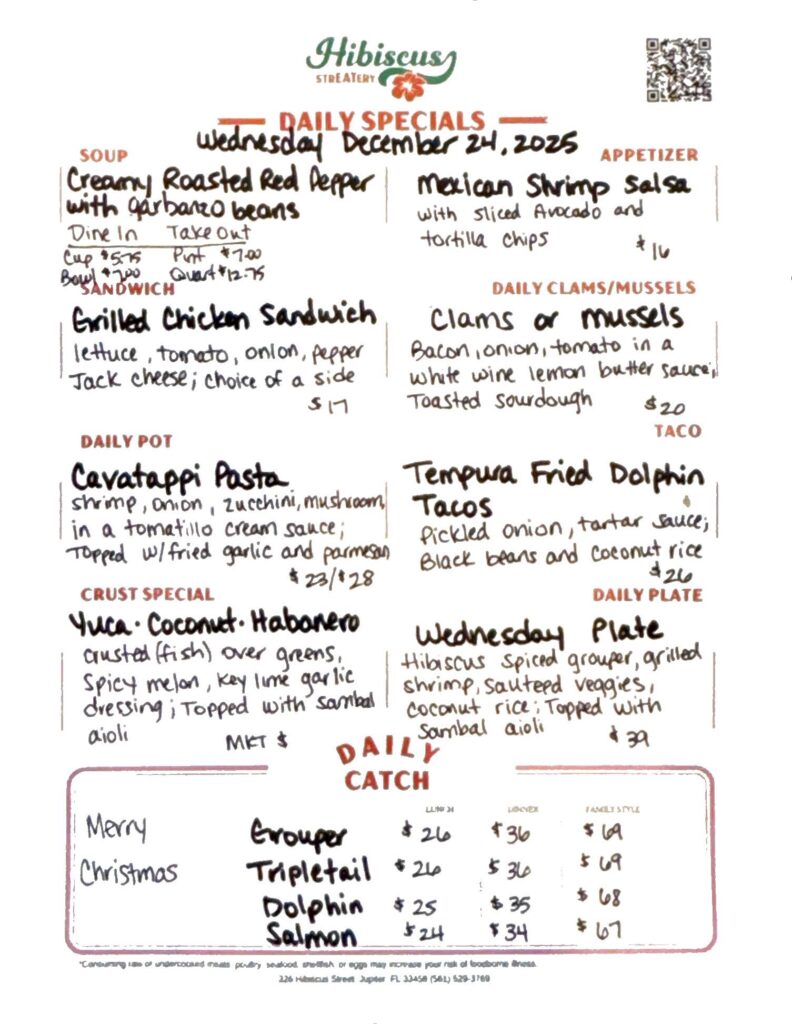 Hibiscus
STREATERY
DAILY SPECIALS
Wednesday December 24, 2025
SOUP
Creamy Roasted Red Pepper
with garbanzo beans
Dine In Take Out
Cup $5.75 Pint $7.00
Bowl $7.00 Quart $12.75
APPETIZER
Mexican Shrimp Salsa
with sliced Avocado and
tortilla chips
$16
SANDWICH
Grilled Chicken Sandwich
lettuce, tomato, onion, pepper
Jack cheese; choice of a side
$17
DAILY CLAMS/MUSSELS
Clams or Mussels
Bacon, onion, tomato in a
white wine lemon butter sauce;
Toasted sourdough $20
DAILY POT
Cavatappi Pasta
shrimp, onion, zucchini, mushroom,
in a tomatillo cream sauce;
Topped w/fried garlic and parmesan
$23/$28
TACO
Tempura Fried Dolphin
Tacos
Pickled onion, tartar sauce;
Black beans and coconut rice
$26
CRUST SPECIAL
Yuca · Coconut · Habanero
crusted (fish) over greens,
spicy melon, key lime garlic
dressing; Topped with sambal
aioli MKT $
DAILY PLATE
Wednesday Plate
Hibiscus spiced grouper, grilled
shrimp, sauteed veggies,
coconut rice; Topped with
Sambal aioli $39
DAILY
CATCH
LUNCH DINNER FAMILY STYLE
Merry
Christmas
Grouper $26 $36 $69
Tripletail $26 $36 $69
Dolphin $25 $35 $68
Salmon $24 $34 $67
*Consuming raw or undercooked meats, poultry, seafood, shellfish, or eggs may increase your risk of foodborne illness.
226 Hibiscus Street Jupiter FL 33458 (561) 529-3769